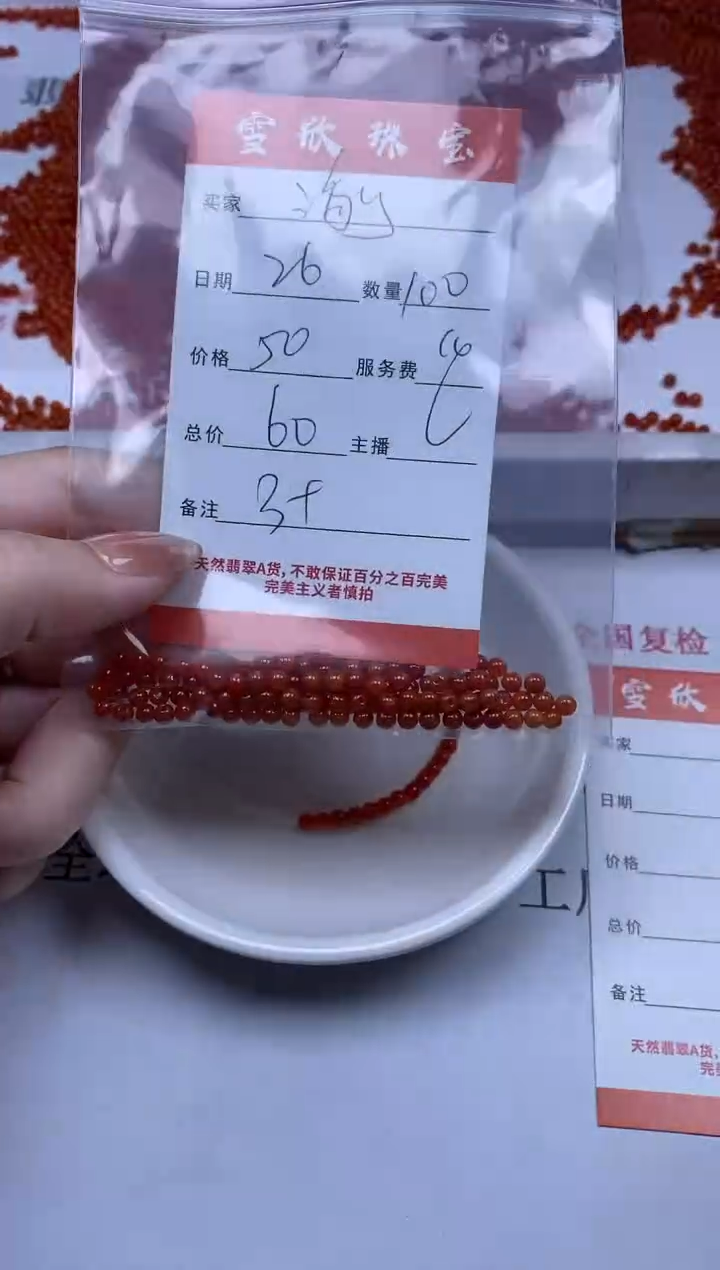 雪欣珠宝
买家
日期 26 数量 100
价格 50 服务费
总价 60 主播
备注 3+
天然翡翠A货,不敢保证百分之百完美
完美主义者慎拍
全国复检
雪欣
家
日期
价格
总价
备注
天然翡翠A货,
完